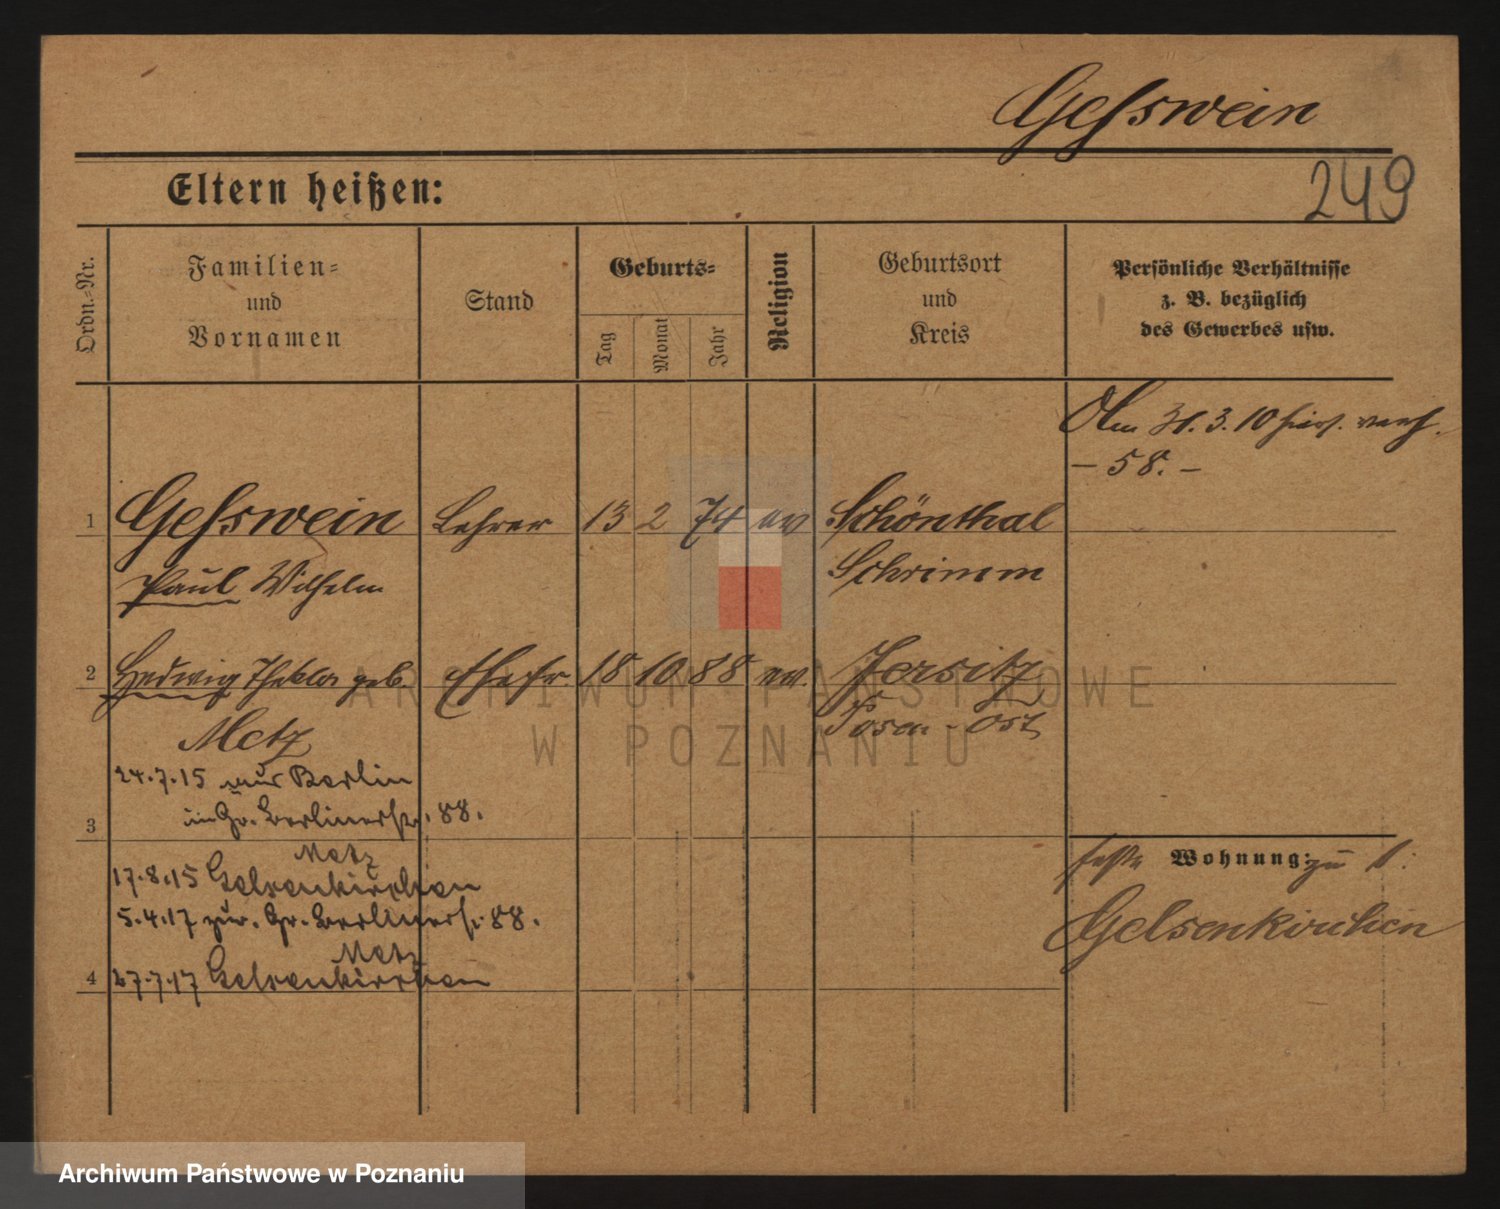 Geſswein
249
Eltern heißen:
Ordn.-Nr.
Familien-
und
Vornamen
Stand
Geburts-
Tag
Monat
Jahr
Religion
Geburtsort
und
Kreis
Persönliche Verhältnisse
z. B. bezüglich
des Gewerbes usw.
Am 31. 3. 10 hier verh.
– 58. –
1 Geſswein Lehrer 13 2 74 ev Schönthal
Paul Wilhelm Schrimm
2 Hedwig Thekla geb. Ehefr. 18 10 88 ev. Jersitz
Metz Posen-Ost
24.7.15 Berlin
Gr. Berlinerstr. 88.
3
Metz
17.8.15 Gelsenkirchen
5.4.17 zur. Gr. Berlinerst. 88.
Metz
4 27.7.17 Gelsenkirchen
Wohnung: zu 1:
Gelsenkirchen
ARCHIWUM PAŃSTWOWE
W POZNANIU
Archiwum Państwowe w Poznaniu